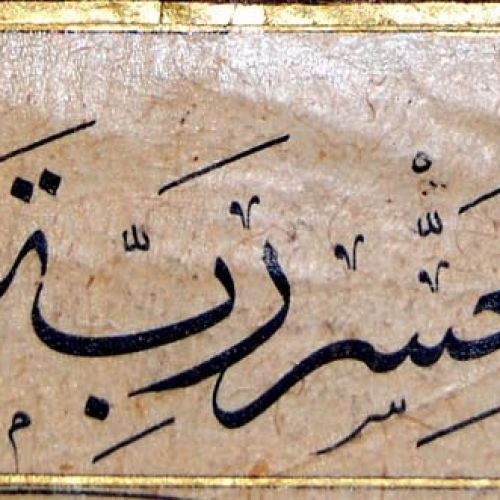 عسِّر ربِّ